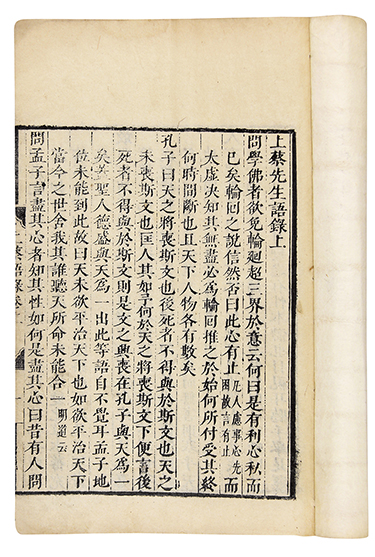 上蔡先生語錄上
問學佛者欲免輪廻超三界於意云何曰是有利心私而
已矣輪回之說信然否曰此心有止凡人慮事心先困故言有止而
太虛決知其無盡必爲輪回推之於始何所付受其終
何時間斷也且天下人物各有數矣
孔子曰天之將喪斯文也後死者不得與於斯文也天之
未喪斯文也匡人其如予何於天之將喪斯文下便言後
死者不得與於斯文則是文之興喪在孔子與天爲一
矣蓋聖人德盛與天爲一出此等語自不覺耳孟子地
位未能到此故曰天未欲平治天下也如欲平治天下
當今之世舍我其誰聽天所命未能合一明道云
問孟子言盡其心者知其性如何是盡其心曰昔有人問
蔡語錄卷上